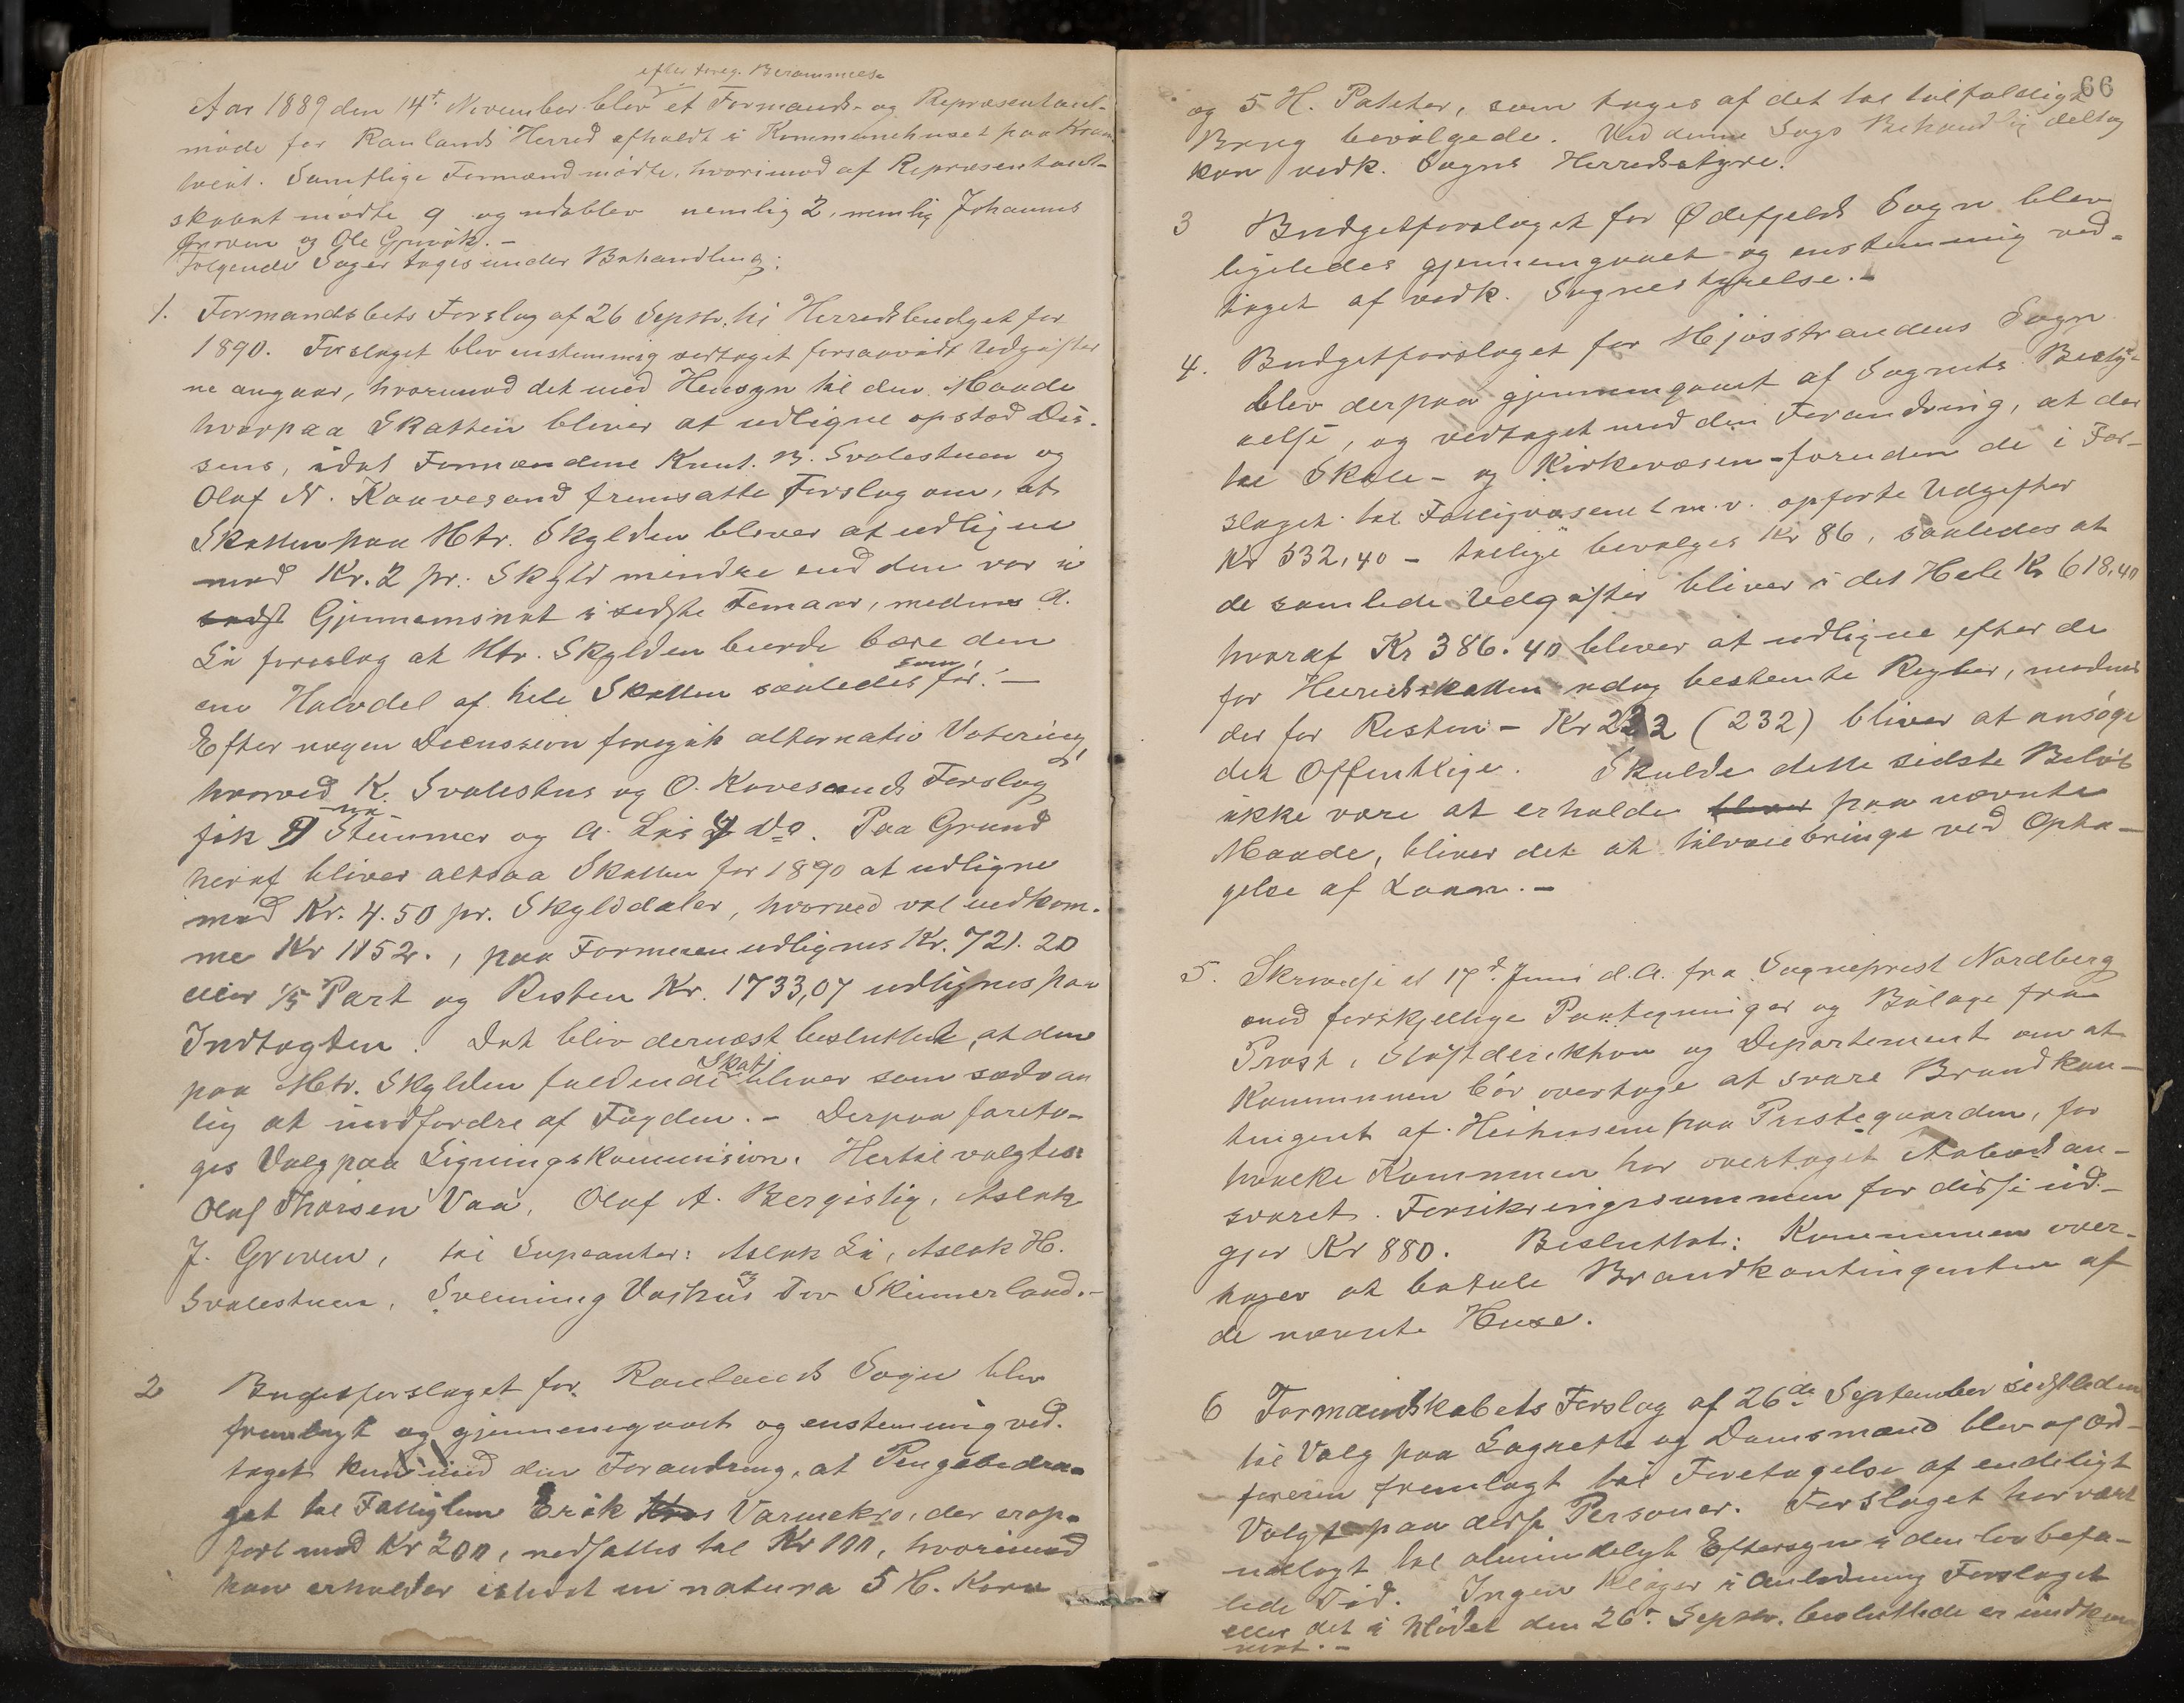 efter foreg. Berammelse
Aar 1889 den 14de November blev et Formands- og Repræsentant-
møde for Raulands Herred afholdt i Kommunehuset paa Kram
tveit. Samtlige Formænd mødte, hvorimod af Repræsentant-
skabet mødte 9 og udeblev nemlig 2, nemlig Johannes
Groven og Ole Gjuvik. -
Følgende Sager toges under Behandling:
1. Formandskbets Forslag af 26 Septbr. til Herredsbudget for
1890. Forslaget blev enstemmig vedtaget forsaavidt Udgifter
ne angaar, hvorimod det med Hensyn til den Maade
hvorpaa Skatten bliver at udligne opstod Dis-
sens, idet Formændene Knut B. Svalestuen og
Olaf N. Kaavesand fremsatte Forslag om, at
Skatten paa Mtr. Skylden bliver at udligne
med Kr. 2 pr. Skyld mindre end den var i
sidst Gjennemsnit i sidste Femaar, medens A.
Li foreslog at Mtr. Skylden burde bære den
ene Halvdel af hele Skatten saaledes som før. -
Efter nogen Discussion foregik alternativ Votering,
hvorved K. Svalestus og O. Kovesands Forslag
fik 9 Stemmer og A. Lis 4 Do. Paa Grund
heraf bliver altsaa Skatten for 1890 at udligne
med Kr. 4.50 pr. Skylddaler, hvorved vil udkom-
me Kr 1152., paa Formuen udlignes Kr. 721.20
eller 1/5 Part og Resten Kr. 1733,07 udlignes paa
Indtægten. Det blev dernæst besluttet, at den
paa Mtr. Skylden faldende Skat bliver som sædvan
lig at indfordre af Fogden. - Derpaa foreto-
ges Valg paa Ligningskommission. Hertil valgtes:
Olaf Thorsen Vaa, Olaf A. Bergislig, Aslak
J. Groven, til Supeanter: Aslak Li, Aslak H.
Svalestuen, Svenning Vashus og Tov Skinnerland. -
2 Bugetforslaget for Raulands Sogn blev
fremlagt og gjennemgaaet og enstemmig ved-
taget kun med den Forandring, at Pengebidra-
get til Fattiglem Erik Varmekro, der erop-
ført med Kr 200, nedsattes til Kr 100, hvorimod
han erholder istedet in natura 5 H. Korn
66
og 5 H. Poteter, som toges af det til tilfældigt
Brug bevilgede. Ved denne Sags Behandlig deltog
kun vedk. Sogns Herredsstyre.
3 Budgetforslaget for Ødefjelds Sogn blev
ligeledes gjennemgaaet og enstemmig ved-
taget af vedk. Sognestyrelse. -
4. Budgetforslaget for Mjøsstrandens Sogn
blev derpaa gjennemgaaet af Sognets Besty-
relse, og vedtaget med den Forandring, at der
til Skole- og Kirkevæsen - foruden de i For-
slaget til Fattigvæsenet m.v. opførte Udgifter
Kr 532,40 - tillige bevilges Kr 86, saaledes at
de samlede Udgifter bliver i det Hele Kr 618,40
hvoraf Kr 386.40 bliver at udligne efter de
for Herredsskatten idag bestemte Regler, medens
der for Resten - Kr 232 (232) bliver at ansøge
det Offentlige. Skulde dette sidste Beløb
ikke være at erholde bliver paa nævnte
Maade, bliver det at tilveiebringe ved Opta-
gelse af Laan. -
5. Skrivelse af 17de Juni d.A. fra Sogneprest Nordberg
med forskjellige Paategninger og Bilage fra
Provst, Stiftdirektion og Departement om at
Kommunen bør overtage at svare Brandkon-
tingent af Heihusene paa Prestegaarden, for
hvilke Kommunen har overtaget Aabodsan-
svaret. Forsikringssummen for disse ud-
gjør Kr 880. Besluttet: Kommunen over-
tager at betale Brandkontingenten af
de nævnte Huse.
6 Formandskabets Forslag af 26de September sidstleden
til Valg paa Lagrette og Domsmænd blev af Ord-
føreren fremlagt til Foretagelse af endeligt
Valg paa disse Personer. Forslaget har vært
udlagt til almindeligt Eftersyn i den lovbefa-
lede Tid. Ingen Klager i Anledning Forslaget
eller det i Mødet den 26de Septbr. besluttede er indkom
met. -